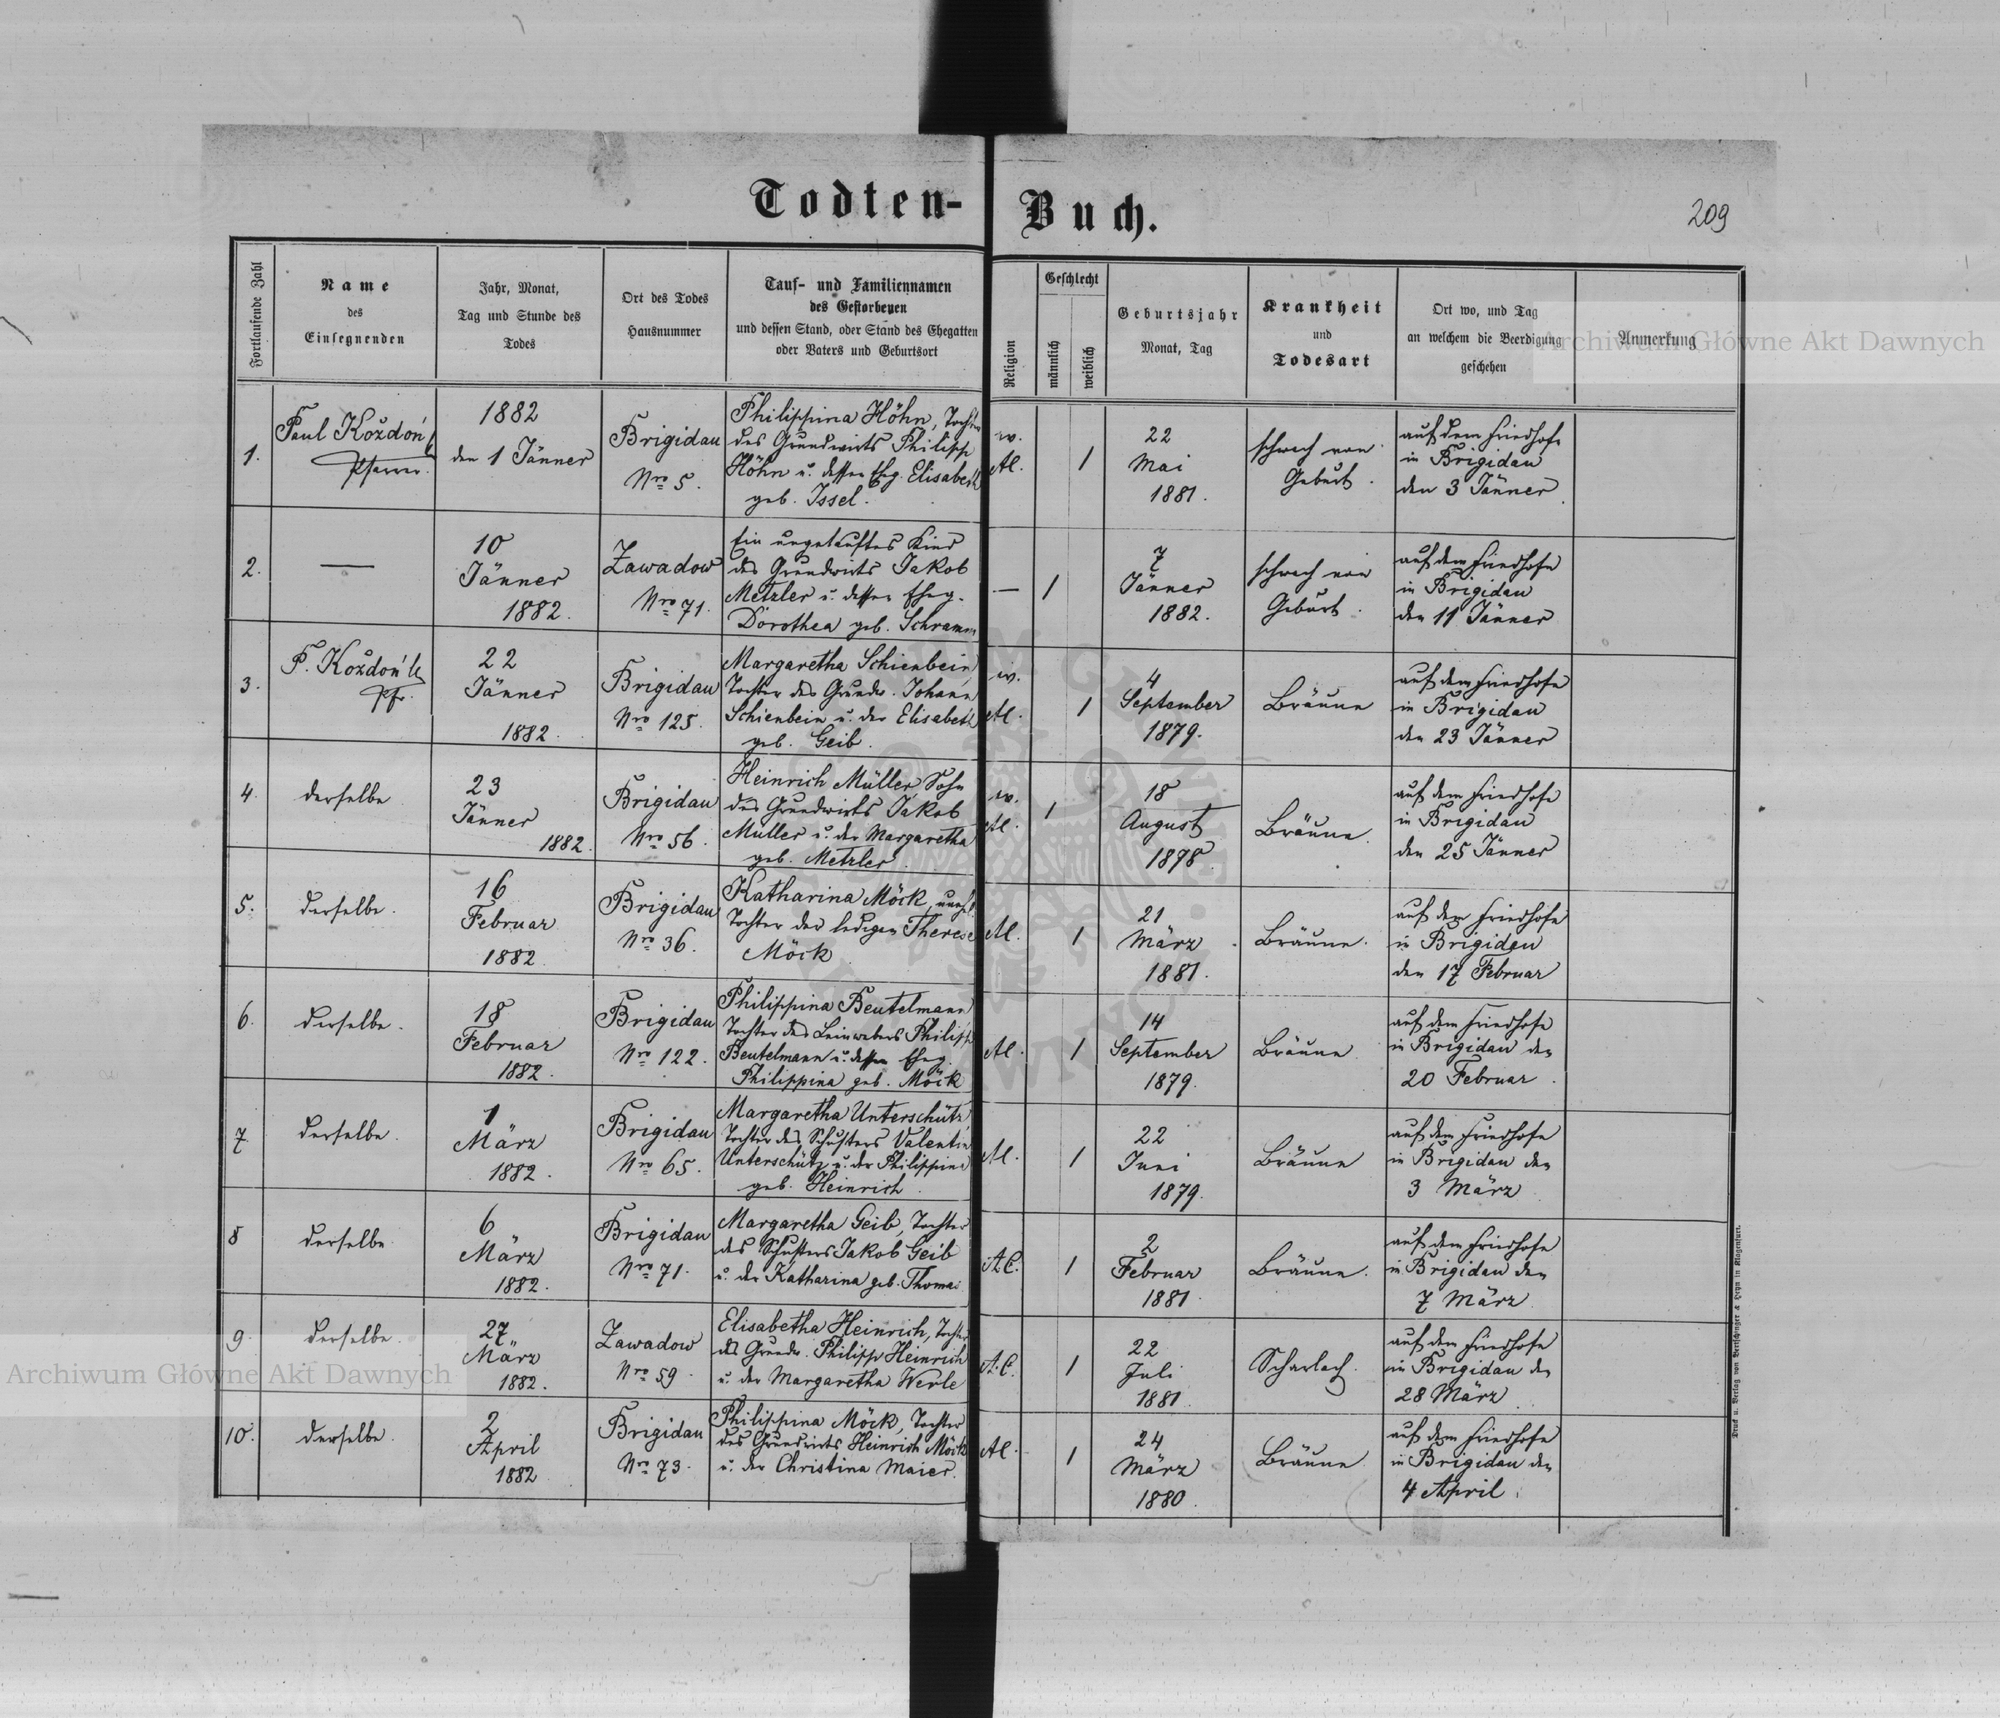 Todten-Buch.
209
Fortlaufende Zahl
Name
des
Einsegnenden
Jahr, Monat,
Tag und Stunde des
Todes
Ort des Todes
Hausnummer
Tauf- und Familiennamen
des Gestorbenen
und dessen Stand, oder Stand des Ehegatten
oder Vaters und Geburtsort
Religion
Geschlecht
männlich
weiblich
Geburtsjahr
Monat, Tag
Krankheit
und
Todesart
Ort wo, und Tag
an welchem die Beerdigung
geschehen
Anmerkung
1.
Paul Koždoń
Pfarrer.
1882
den 1 Jänner
Brigidau
Nro 5.
Philippina Höhn, Tochter
des Grundwirts Philipp
Höhn u. dessen Eheg. Elisabeth
geb. Issel.
1
22
Mai
1881.
schwach von
Geburt.
auf dem Friedhofe
in Brigidau
den 3 Jänner
2.
—
10
Jänner
1882.
Zawadow
Nro 71.
Ein ungetauftes Kind
des Grundwirts Jakob
Metzler u. dessen Eheg.
Dorothea geb. Schramm
—
1
7
Jänner
1882.
schwach von
Geburt.
auf dem Friedhofe
in Brigidau
den 11 Jänner
3.
P. Koždoń
Pfr.
22
Jänner
1882.
Brigidau
Nro 125.
Margaretha Schienbein,
Tochter des Grundw. Johann
Schienbein u. der Elisabeth
geb. Geib.
1
4
September
1879.
Bräune
auf dem Friedhofe
in Brigidau
den 23 Jänner
4.
derselbe
23
Jänner
1882.
Brigidau
Nro 56.
Heinrich Müller, Sohn
des Grundwirts Jakob
Müller u. der Margaretha
geb. Metzler.
1
18
August
1878.
Bräune.
auf dem Friedhofe
in Brigidau
den 25 Jänner
5.
derselbe.
16
Februar
1882.
Brigidau
Nro 36.
Katharina Möck, unehl.
Tochter der ledigen Therese
Möck
1
21
März
1881.
Bräune.
auf dem Friedhofe
in Brigidau
den 17 Februar
6.
derselbe.
18
Februar
1882.
Brigidau
Nro 122.
Philippina Beutelmann
Tochter des Leinwebers Philipp
Beutelmann u. dessen Eheg.
Philippina geb. Möck
1
14
September
1879.
Bräune
auf dem Friedhofe
in Brigidau den
20 Februar.
7
derselbe.
1
März
1882.
Brigidau
Nro 65.
Margaretha Unterschütz,
Tochter des Schusters Valentin
Unterschütz u. der Philippine
geb. Heinrich.
1
22
Juni
1879.
Bräune
auf dem Friedhofe
in Brigidau den
3 März
8
derselbe
6
März
1882.
Brigidau
Nro 71.
Margaretha Geib, Tochter
des Schusters Jakob Geib
u. der Katharina geb. Thomas
A.C.
1
2
Februar
1881.
Bräune.
auf dem Friedhofe
in Brigidau den
7 März
9.
derselbe.
27
März
1882.
Zawadow
Nro 59.
Elisabetha Heinrich, Tochter
des Grundw. Philipp Heinrich
u. der Margaretha Werle
A.C.
1
22
Juli
1881.
Scharlach.
auf dem Friedhofe
in Brigidau den
28 März
10.
derselbe.
2
April
1882
Brigidau
Nro 73.
Philippina Möck, Tochter
des Grundwirts Heinrich Möck
u. der Christina Maier.
1
24
März
1880.
Bräune
auf dem Friedhofe
in Brigidau den
4 April.
Archiwum Główne Akt Dawnych
Archiwum Główne Akt Dawnych